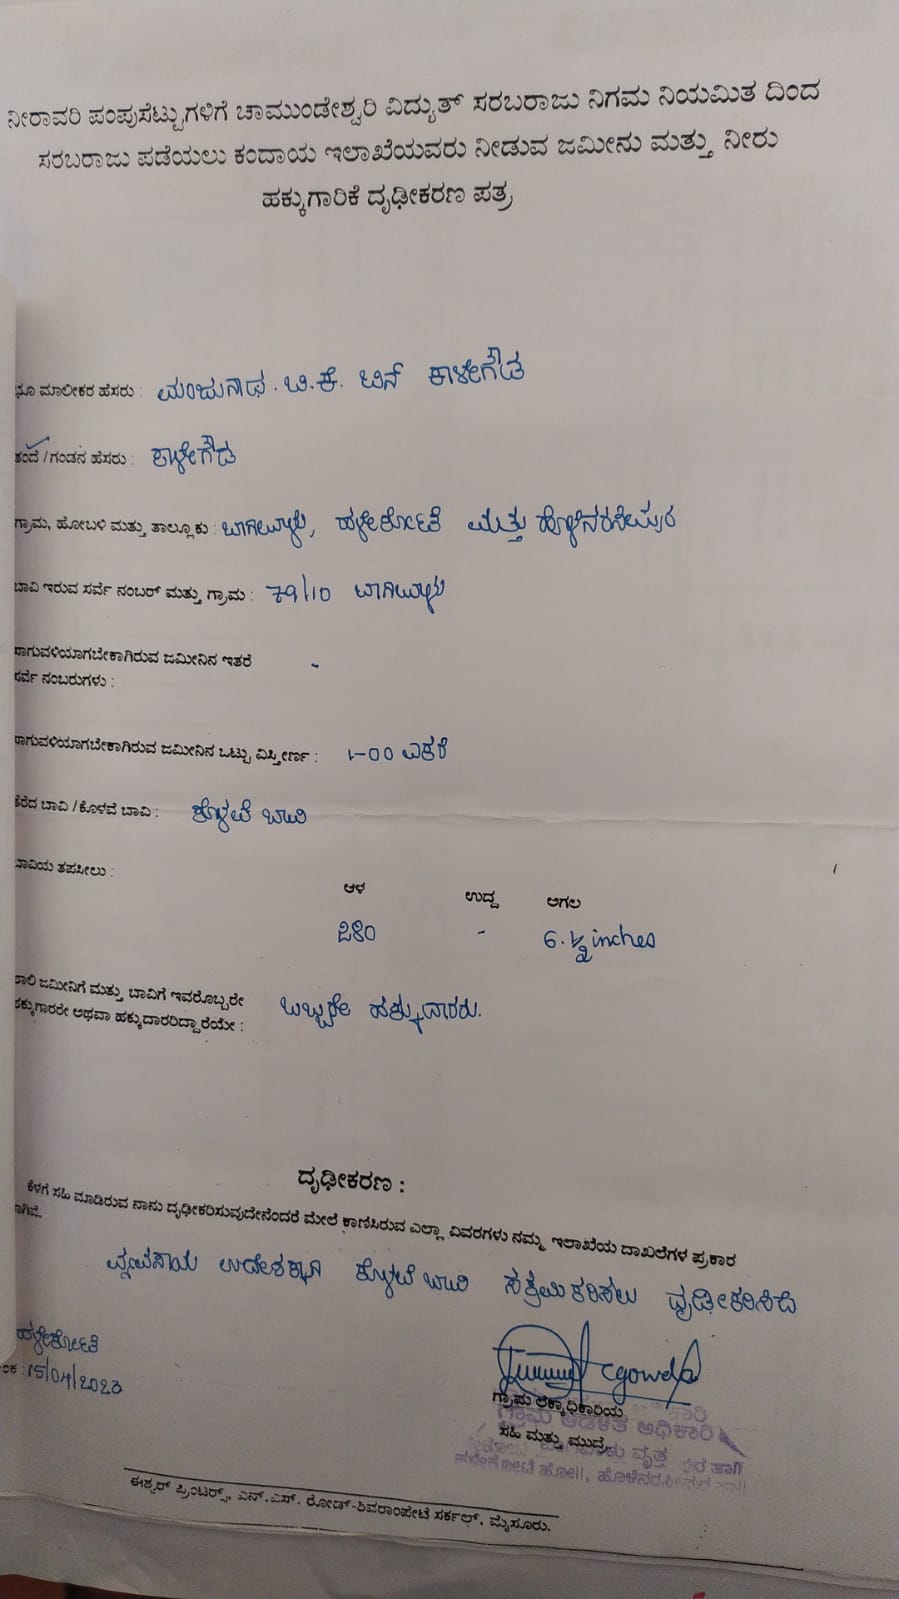 ನೀರಾವರಿ ಪಂಪುಸೆಟ್ಟುಗಳಿಗೆ ಚಾಮುಂಡೇಶ್ವರಿ ವಿದ್ಯುತ್ ಸರಬರಾಜು ನಿಗಮ ನಿಯಮಿತ ದಿಂದ
ಸರಬರಾಜು ಪಡೆಯಲು ಕಂದಾಯ ಇಲಾಖೆಯವರು ನೀಡುವ ಜಮೀನು ಮತ್ತು ನೀರು
ಹಕ್ಕುಗಾರಿಕೆ ದೃಢೀಕರಣ ಪತ್ರ
ಭೂ ಮಾಲೀಕರ ಹೆಸರು : ಮಂಜುನಾಥ. ಟಿ.ಕೆ. ಬಿನ್ ಕಾಳೇಗೌಡ
ತಂದೆ / ಗಂಡನ ಹೆಸರು : ಕಾಳೇಗೌಡ
ಗ್ರಾಮ, ಹೋಬಳಿ ಮತ್ತು ತಾಲ್ಲೂಕು : ಹಳೇಕೋಟೆ ಮತ್ತು ಹೊಳೆನರಸೀಪುರ
ಬಾವಿ ಇರುವ ಸರ್ವೆ ನಂಬರ್ ಮತ್ತು ಗ್ರಾಮ : 79/10
ಸಾಗುವಳಿಯಾಗಬೇಕಾಗಿರುವ ಜಮೀನಿನ ಇತರೆ -
ಸರ್ವೆ ನಂಬರುಗಳು :
ಸಾಗುವಳಿಯಾಗಬೇಕಾಗಿರುವ ಜಮೀನಿನ ಒಟ್ಟು ವಿಸ್ತೀರ್ಣ : ೧-೦೦ ಎಕರೆ
ತೆರೆದ ಬಾವಿ / ಕೊಳವೆ ಬಾವಿ : ಕೊಳವೆ ಬಾವಿ
ಬಾವಿಯ ತಪಸೀಲು :
ಆಳ ಉದ್ದ ಅಗಲ
- 6.½ inches
ಜಮೀನಿಗೆ ಮತ್ತು ಬಾವಿಗೆ ಇವರೊಬ್ಬರೇ
ಹಕ್ಕುಗಾರರೇ ಅಥವಾ ಹಕ್ಕುದಾರರಿದ್ದಾರೆಯೇ : ಒಬ್ಬರೇ ಹಕ್ಕುದಾರರು.
ದೃಢೀಕರಣ :
ಕೆಳಗೆ ಸಹಿ ಮಾಡಿರುವ ನಾನು ದೃಢೀಕರಿಸುವುದೇನೆಂದರೆ ಮೇಲೆ ಕಾಣಿಸಿರುವ ಎಲ್ಲಾ ವಿವರಗಳು ನಮ್ಮ ಇಲಾಖೆಯ ದಾಖಲೆಗಳ ಪ್ರಕಾರ
ವ್ಯವಸಾಯ ಉದ್ದೇಶಕ್ಕಾಗಿ ಕೊಳವೆ ಬಾವಿ ಸಕ್ರಮಿಕರಿಸಲು ದೃಢೀಕರಿಸಿದೆ
ಹಳೇಕೋಟೆ
15/04/2023
ಗ್ರಾಮ ಲೆಕ್ಕಾಧಿಕಾರಿಯ
ಗ್ರಾಮ ಆಡಳಿತ ಅಧಿಕಾರಿ
ಸಹಿ ಮತ್ತು ಮುದ್ರೆ
ವೃತ್ತ
ಹಳೇಕೋಟೆ ಹೋ||, ಹೊಳೆನರಸೀಪುರ ತಾ||
ಈಶ್ವರ್ ಪ್ರಿಂಟರ್ಸ್, ಎನ್.ಎಸ್. ರೋಡ್-ಶಿವರಾಂಪೇಟೆ ಸರ್ಕಲ್, ಮೈಸೂರು.